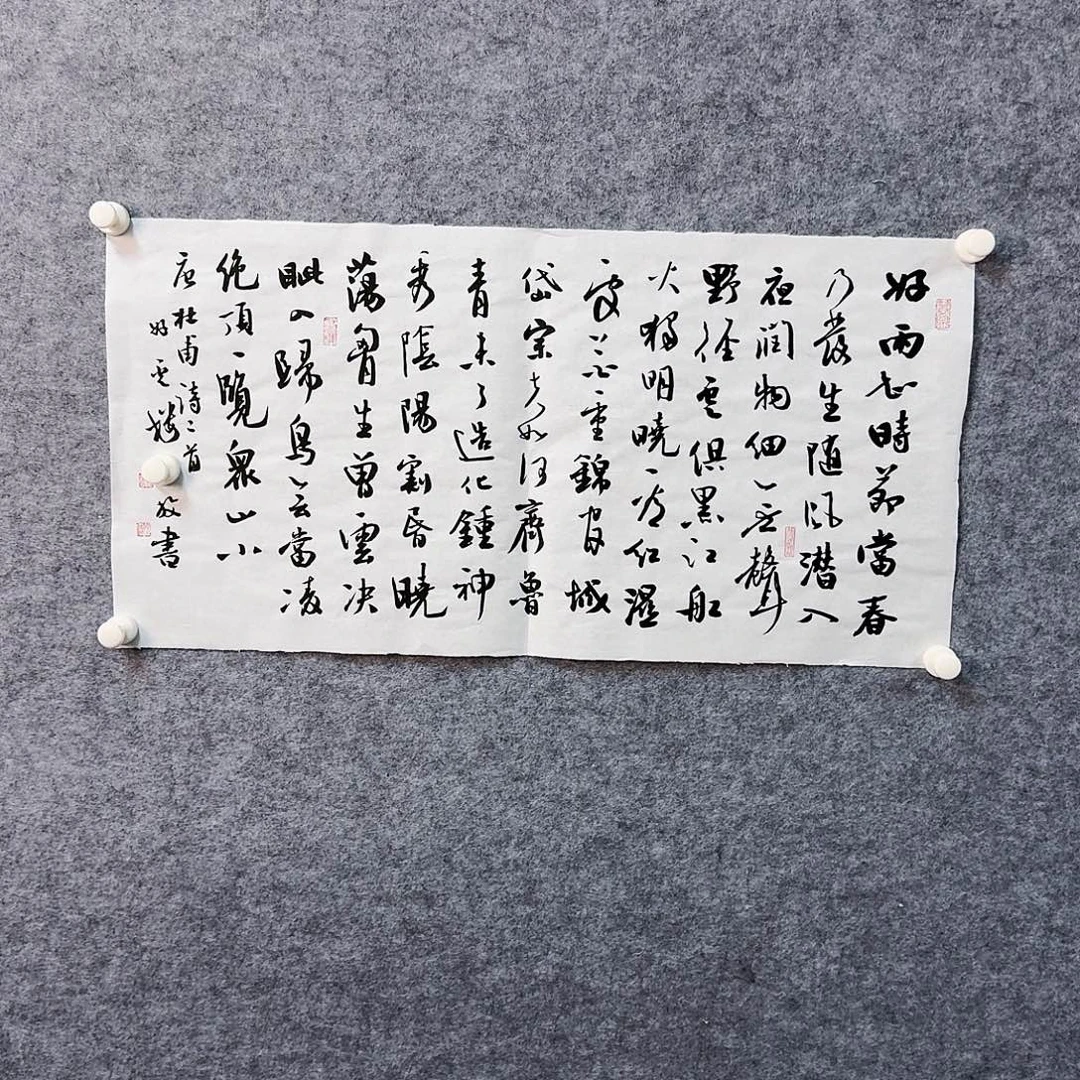 好雨知時節當春
乃發生随風潜入
夜润物细無聲
野径雲俱黑江船
火獨明曉看红濕
處花重錦官城
岱宗夫如何齊魯
青未了造化鍾神
秀陰陽割昏曉
蕩胷生曾雲决
眦入歸鳥会當凌
绝頂一覽衆山小
唐杜甫詩二首
好雲樓 書